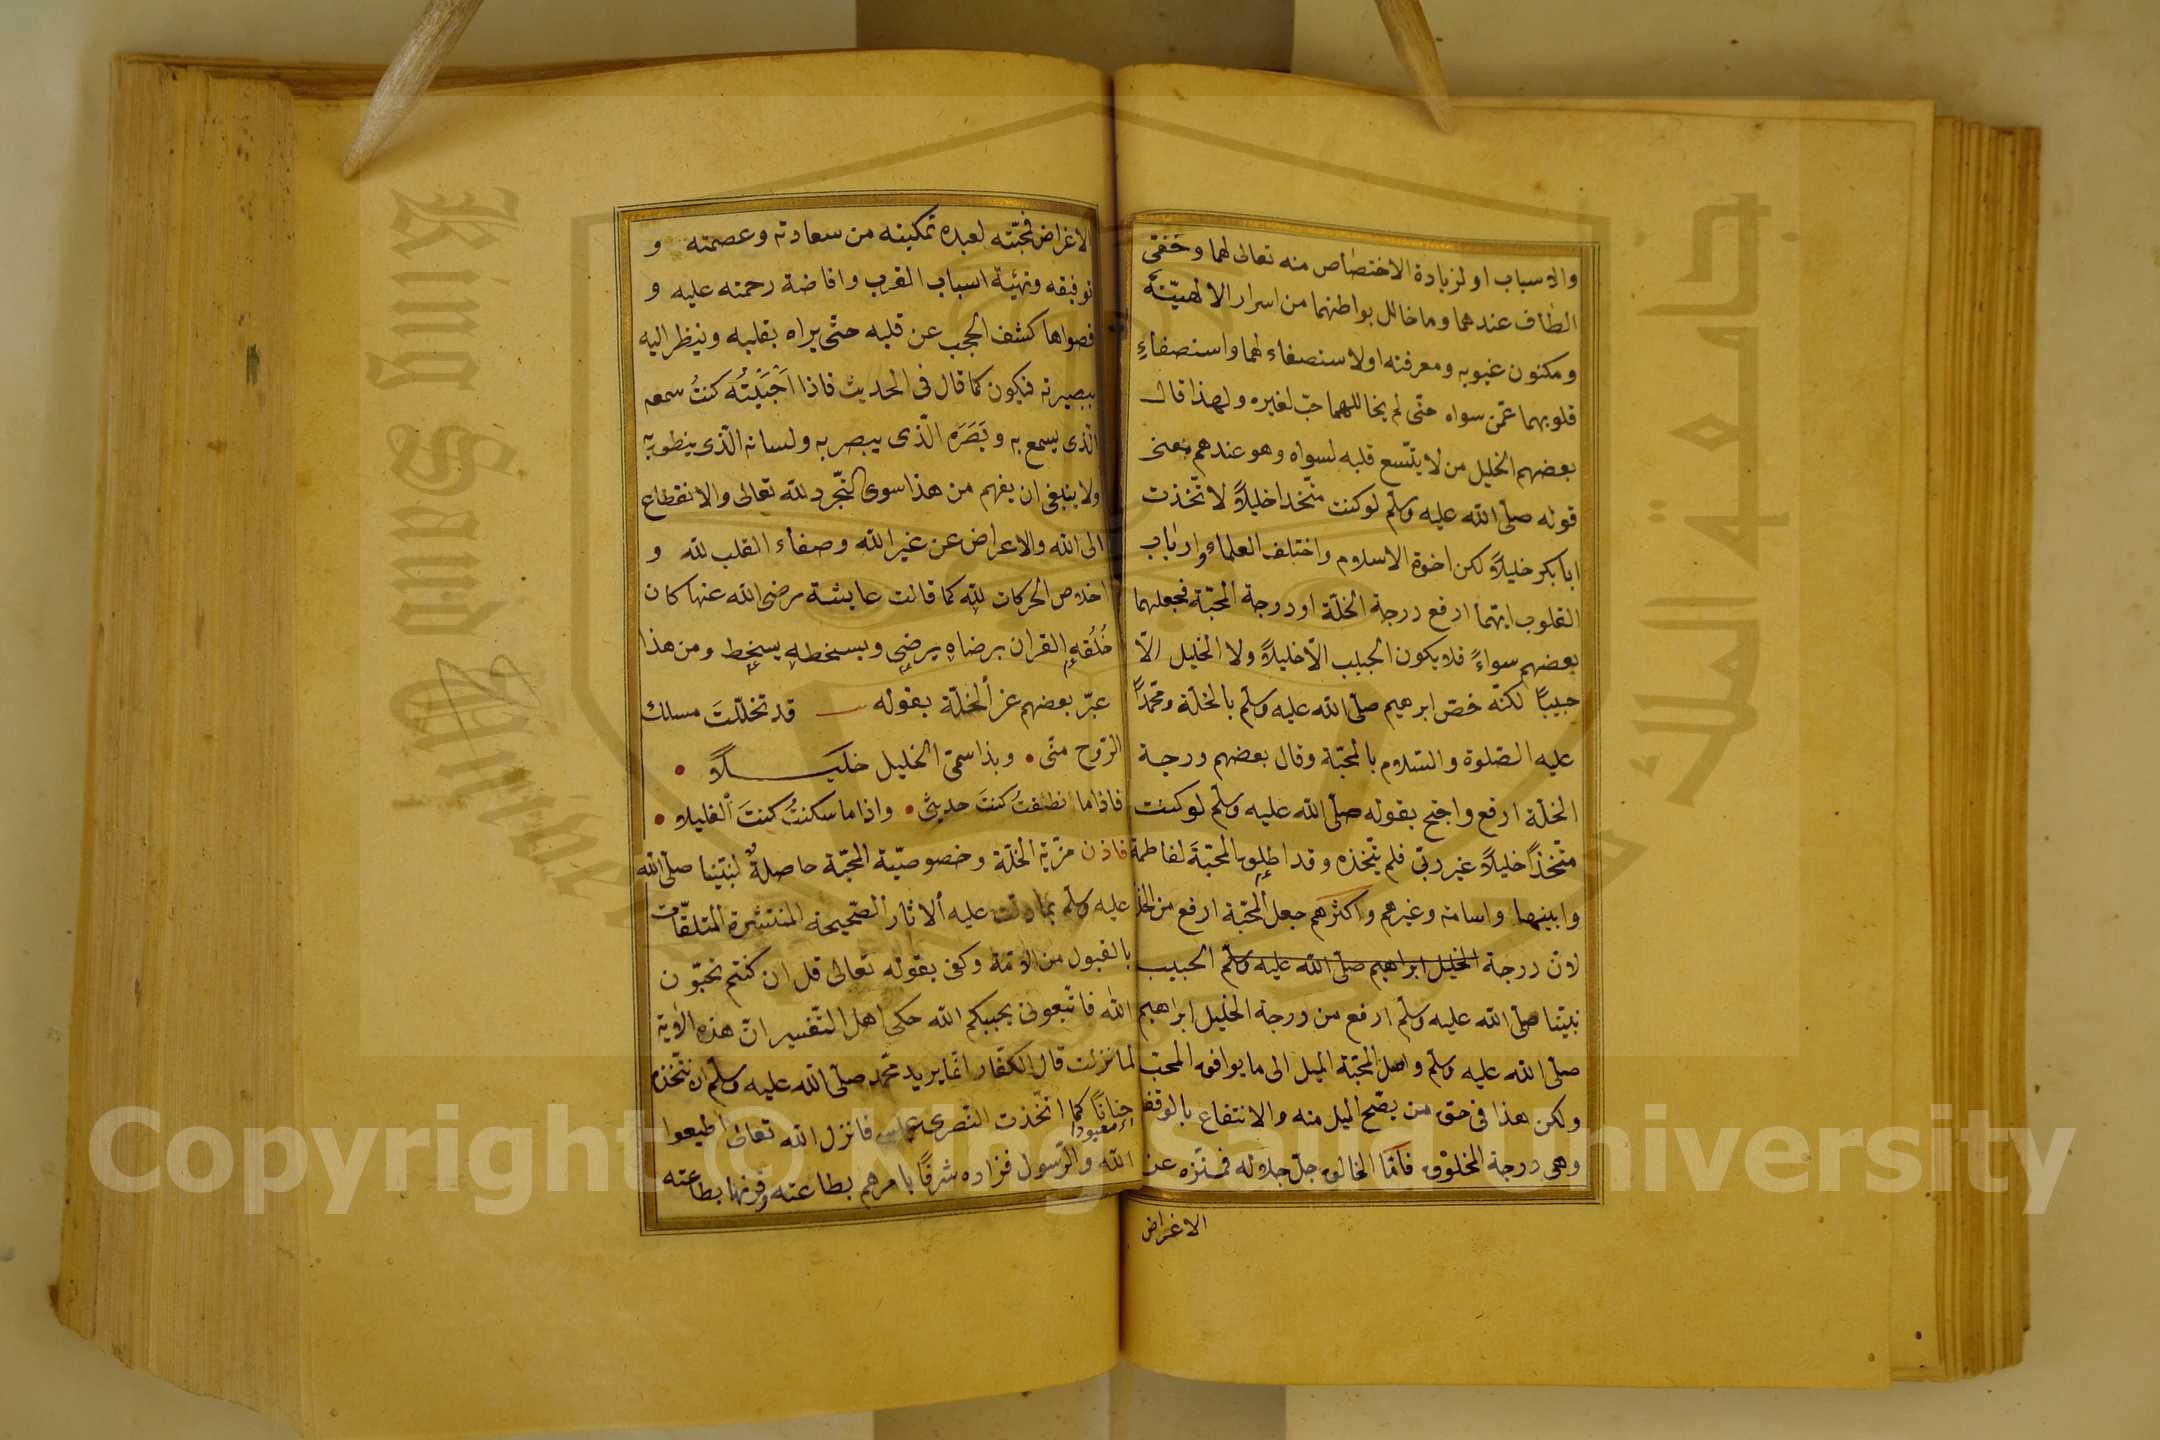 والاسباب او لزيادة الاختصاص منه تعالى لهما وخفىّ
الطاف عندهما وما خالل بواطنهما من اسرار الالهيّته
ومكنون غيوبه ومعرفته او لاستصفاء لهما واستصفاءِ
قلوبهما عمّن سواه حتّى لم يخاللهما حبّ لغيره ولهذا قال
بعضهم الخليل من لا يتّسع قلبه لسواه وهو عندهم معنى
قوله صلّى الله عليه وسلّم لو كنت متّخدا خليلاً لاتّخذت
ابابكر خليلاً لكن اخوة الاسلام واختلف العلماء وارباب
القلوب ايّهما ارفع درجة الخلّة او درجة المحبّة فجعلهما
بعضهم سواءً فلا يكون الحبيب الاّ خليلاً ولا الخليل الاّ
حبيبًا لكنّه خصّ ابرهيم صلّى الله عليه وسلّم بالخلّة ومحمّدًا
عليه الصّلوة والسّلام بالمحبّة وقال بعضهم درجة
الخلّة ارفع واحتجّ بقوله صلّى الله عليه وسلّم لو كنت
متّخذًا خليلاً غير ربّى فلم يتّخذه وقد اطلق المحبّة لفاطمة
وابنيها واسامة وغيرهم واكثرهم جعل المحبّة ارفع من الخلّة
لانّ درجة الخليل ابراهيم صلّى الله عليه وسلّم الحبيب
نبيّنا صلّى الله عليه وسلّم ارفع من درجة الخليل ابراهيم
صلّى الله عليه وسلّم واصل المحبّة الميل الى ما يوافق المحبّ
ولكن هذا فى حق من يصّح الميل منه والانتفاع بالوفق
وهى درجة المخلوق فامّا الخالق جلّ جلاله فمنّزه عن
الاغراض
الاغراض فمحبّته لعبده تمكينه من سعادته وعصمته و
توفيقه وتهيّئة اسباب القرب وافاضة رحمته عليه و
قصواها كشف الحجب عن قلبه حتّى يراه بقلبه وينظر اليه
ببصيرته فيكون كما قال فى الحديث فاذا اَحْبَبْتُه كنتُ سمعه
الّذى يسمع به وبَصَرَه الّذى يبصر به ولسانه الّذى ينطق به
ولا ينبغى ان يفهم من هذا سوى التّجرّد لله تعالى والانقطاع
الى الله والاعراض عن غير الله وصفاء القلب لله و
اخلاص الحركات لله كما قالت عايشة رضى الله عنها كان
خُلُقه القران برضاه يرضى وبسخطه يسخط ومن هذا
عبّر بعضهم عن الخلّة بقوله قد تخلّلتَ مسلك
الرّوح منّى • وبذا سمّى الخليل خليلاً •
فاذا ما نطقتُ كنتَ حديثى • واذا ما سكتُّ كنتَ الغليلا •
فاذن مزيّة الخلّة وخصوصيّة المحبّة حاصلةٌ لنبيّنا صلّى الله
عليه وسلّم بما دلّت عليه الاثار الصّحيحة المنتشرة المتلقّات
بالقبول من الامّة وكفى بقوله تعالى قل ان كنتم تحبّون
الله فاتّبعونى يحببكم الله حكى اهل التّفسير انّ هذه الاية
لما نزلت قال الكفّار انّما يريد محمّد صلّى الله عليه وسلّم ان نتّخذه
حنانًا كما اتّخذت النّصرى عيسى فانزل الله تعالى اطيعوا
اى معبودا
الله والرّسول فزاده شرفًا بامرهم بطاعته وقرنها بطاعته
King Saud University
جامعة الملك سعود
Copyright © King Saud University